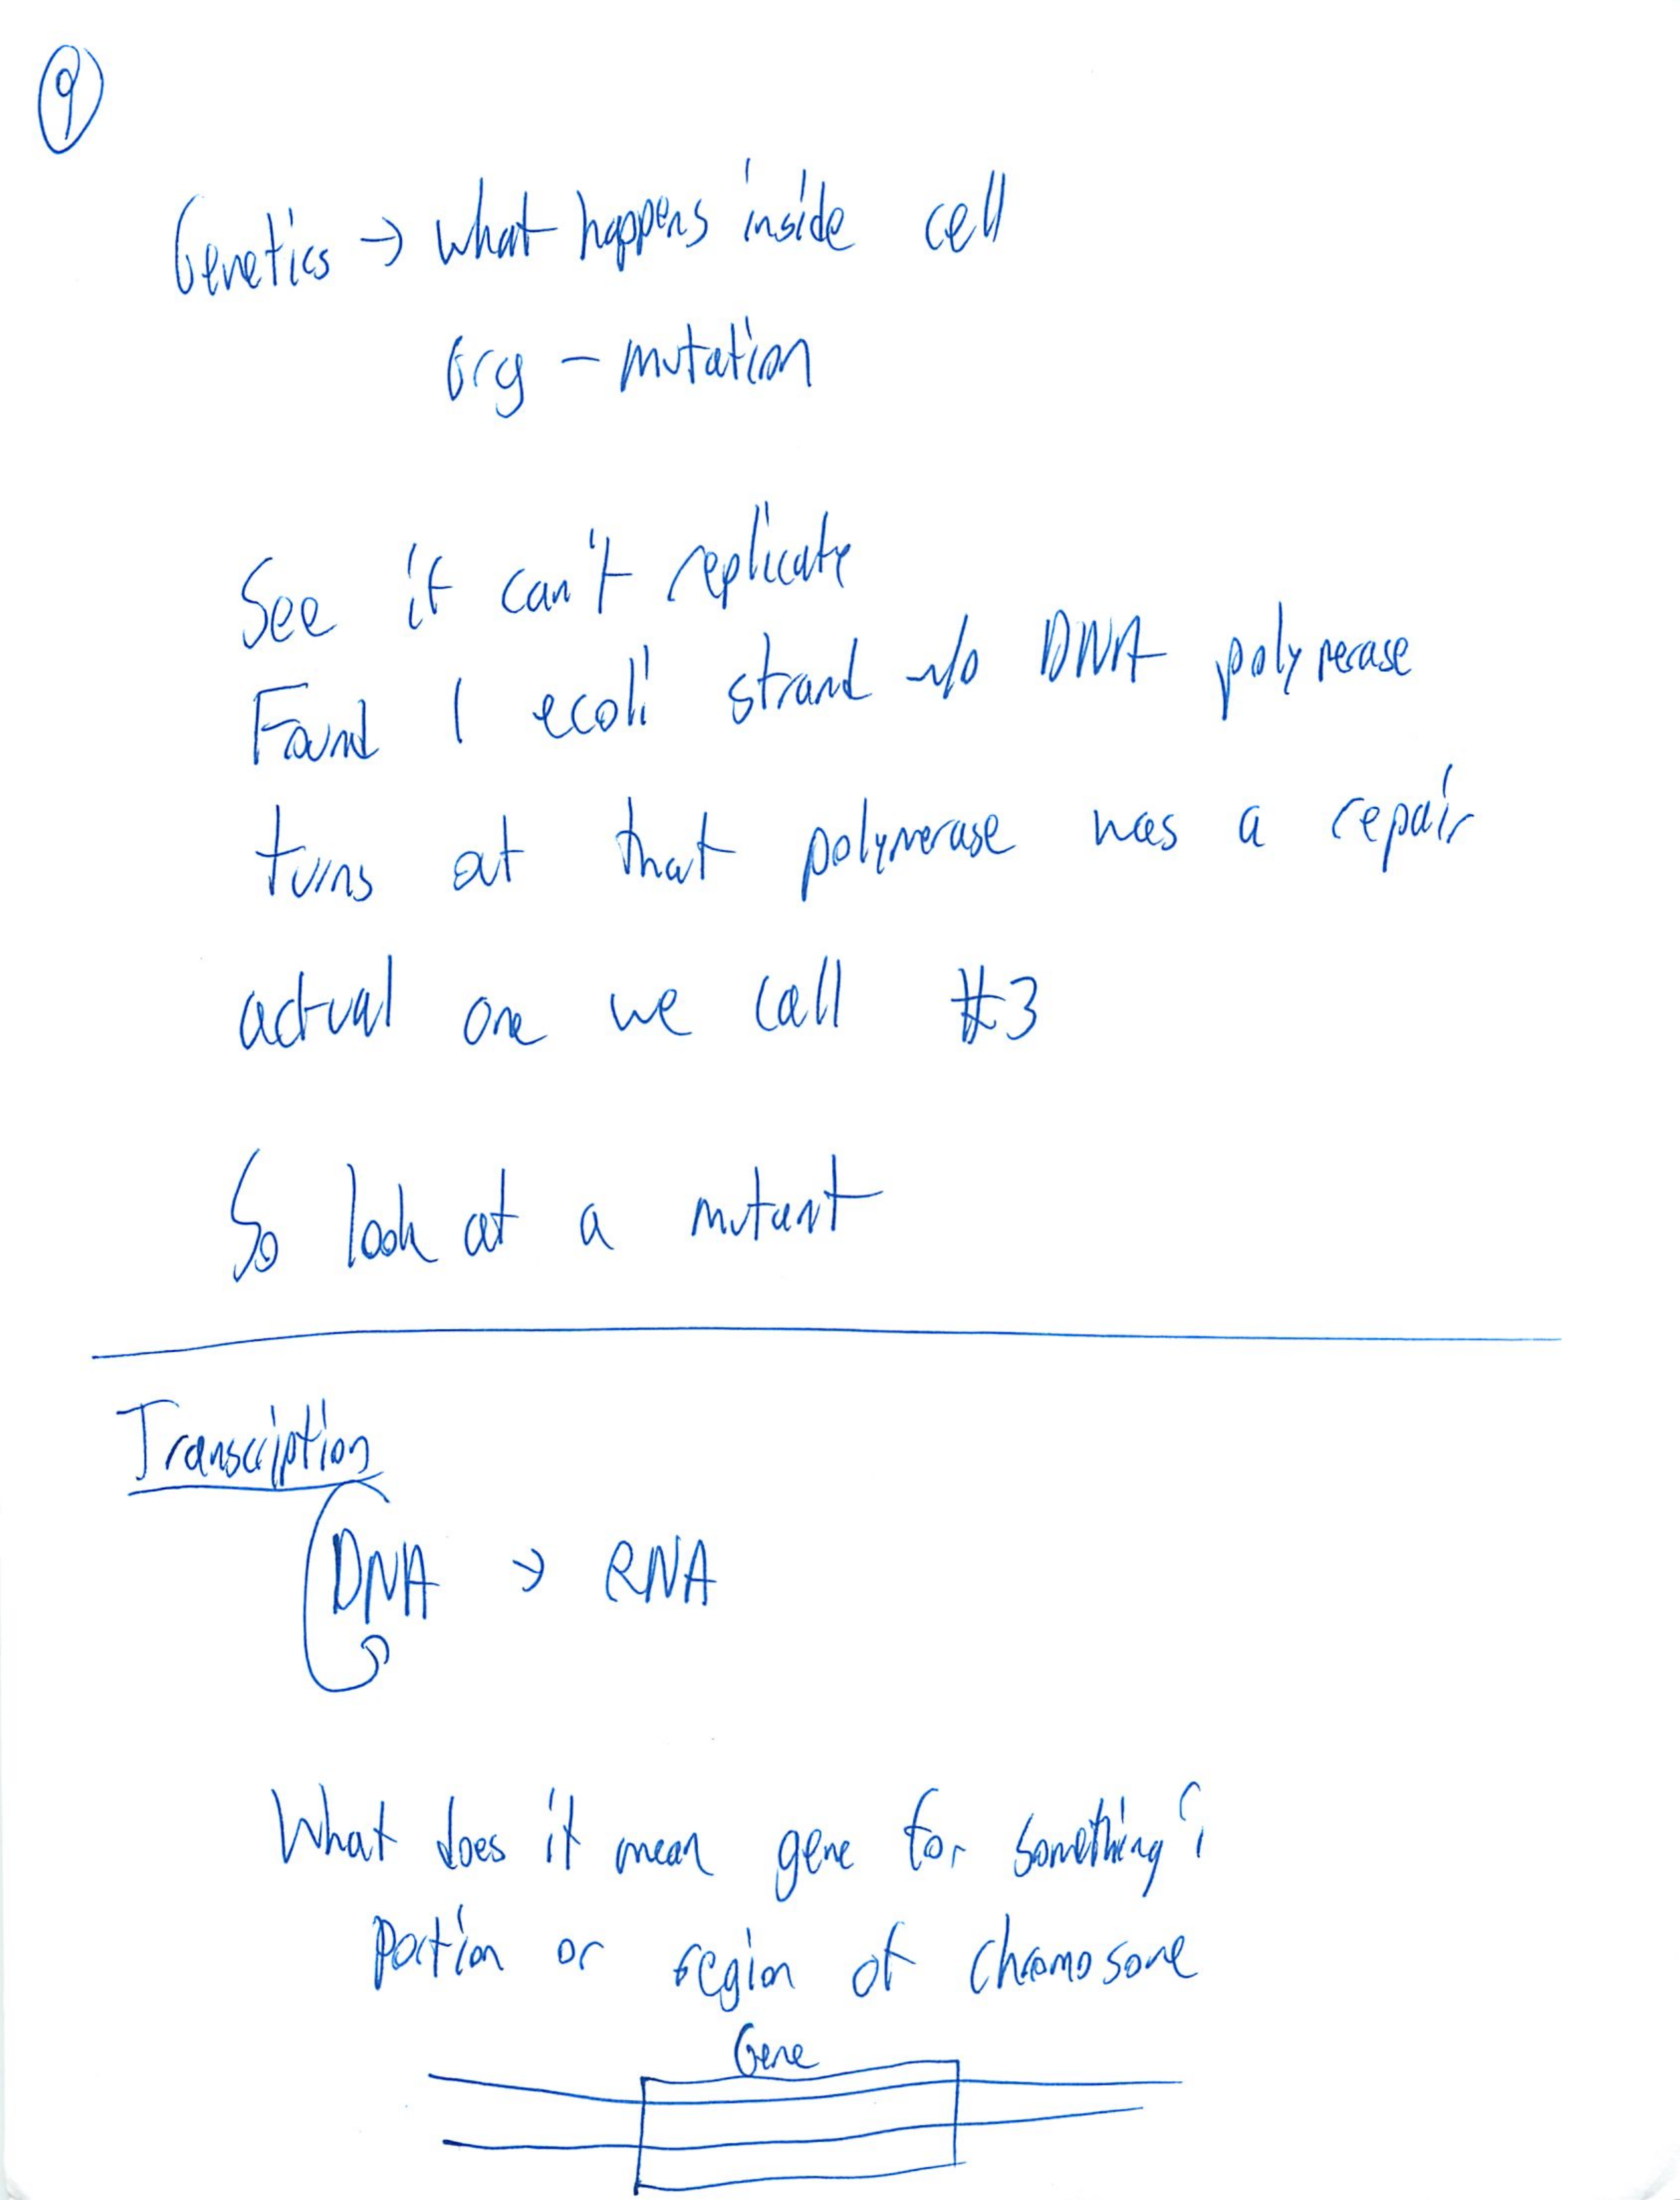 9
Genetics → what happens inside cell
Org - mutation
See if can't replicate
Found 1 ecoli strand w/o DNA polymerase
turns out that polymerase was a repair
actual one we call #3
So look at a mutant
Transcription
DNA → RNA
What does it mean gene for something?
Portion or region of chromosome
Gene